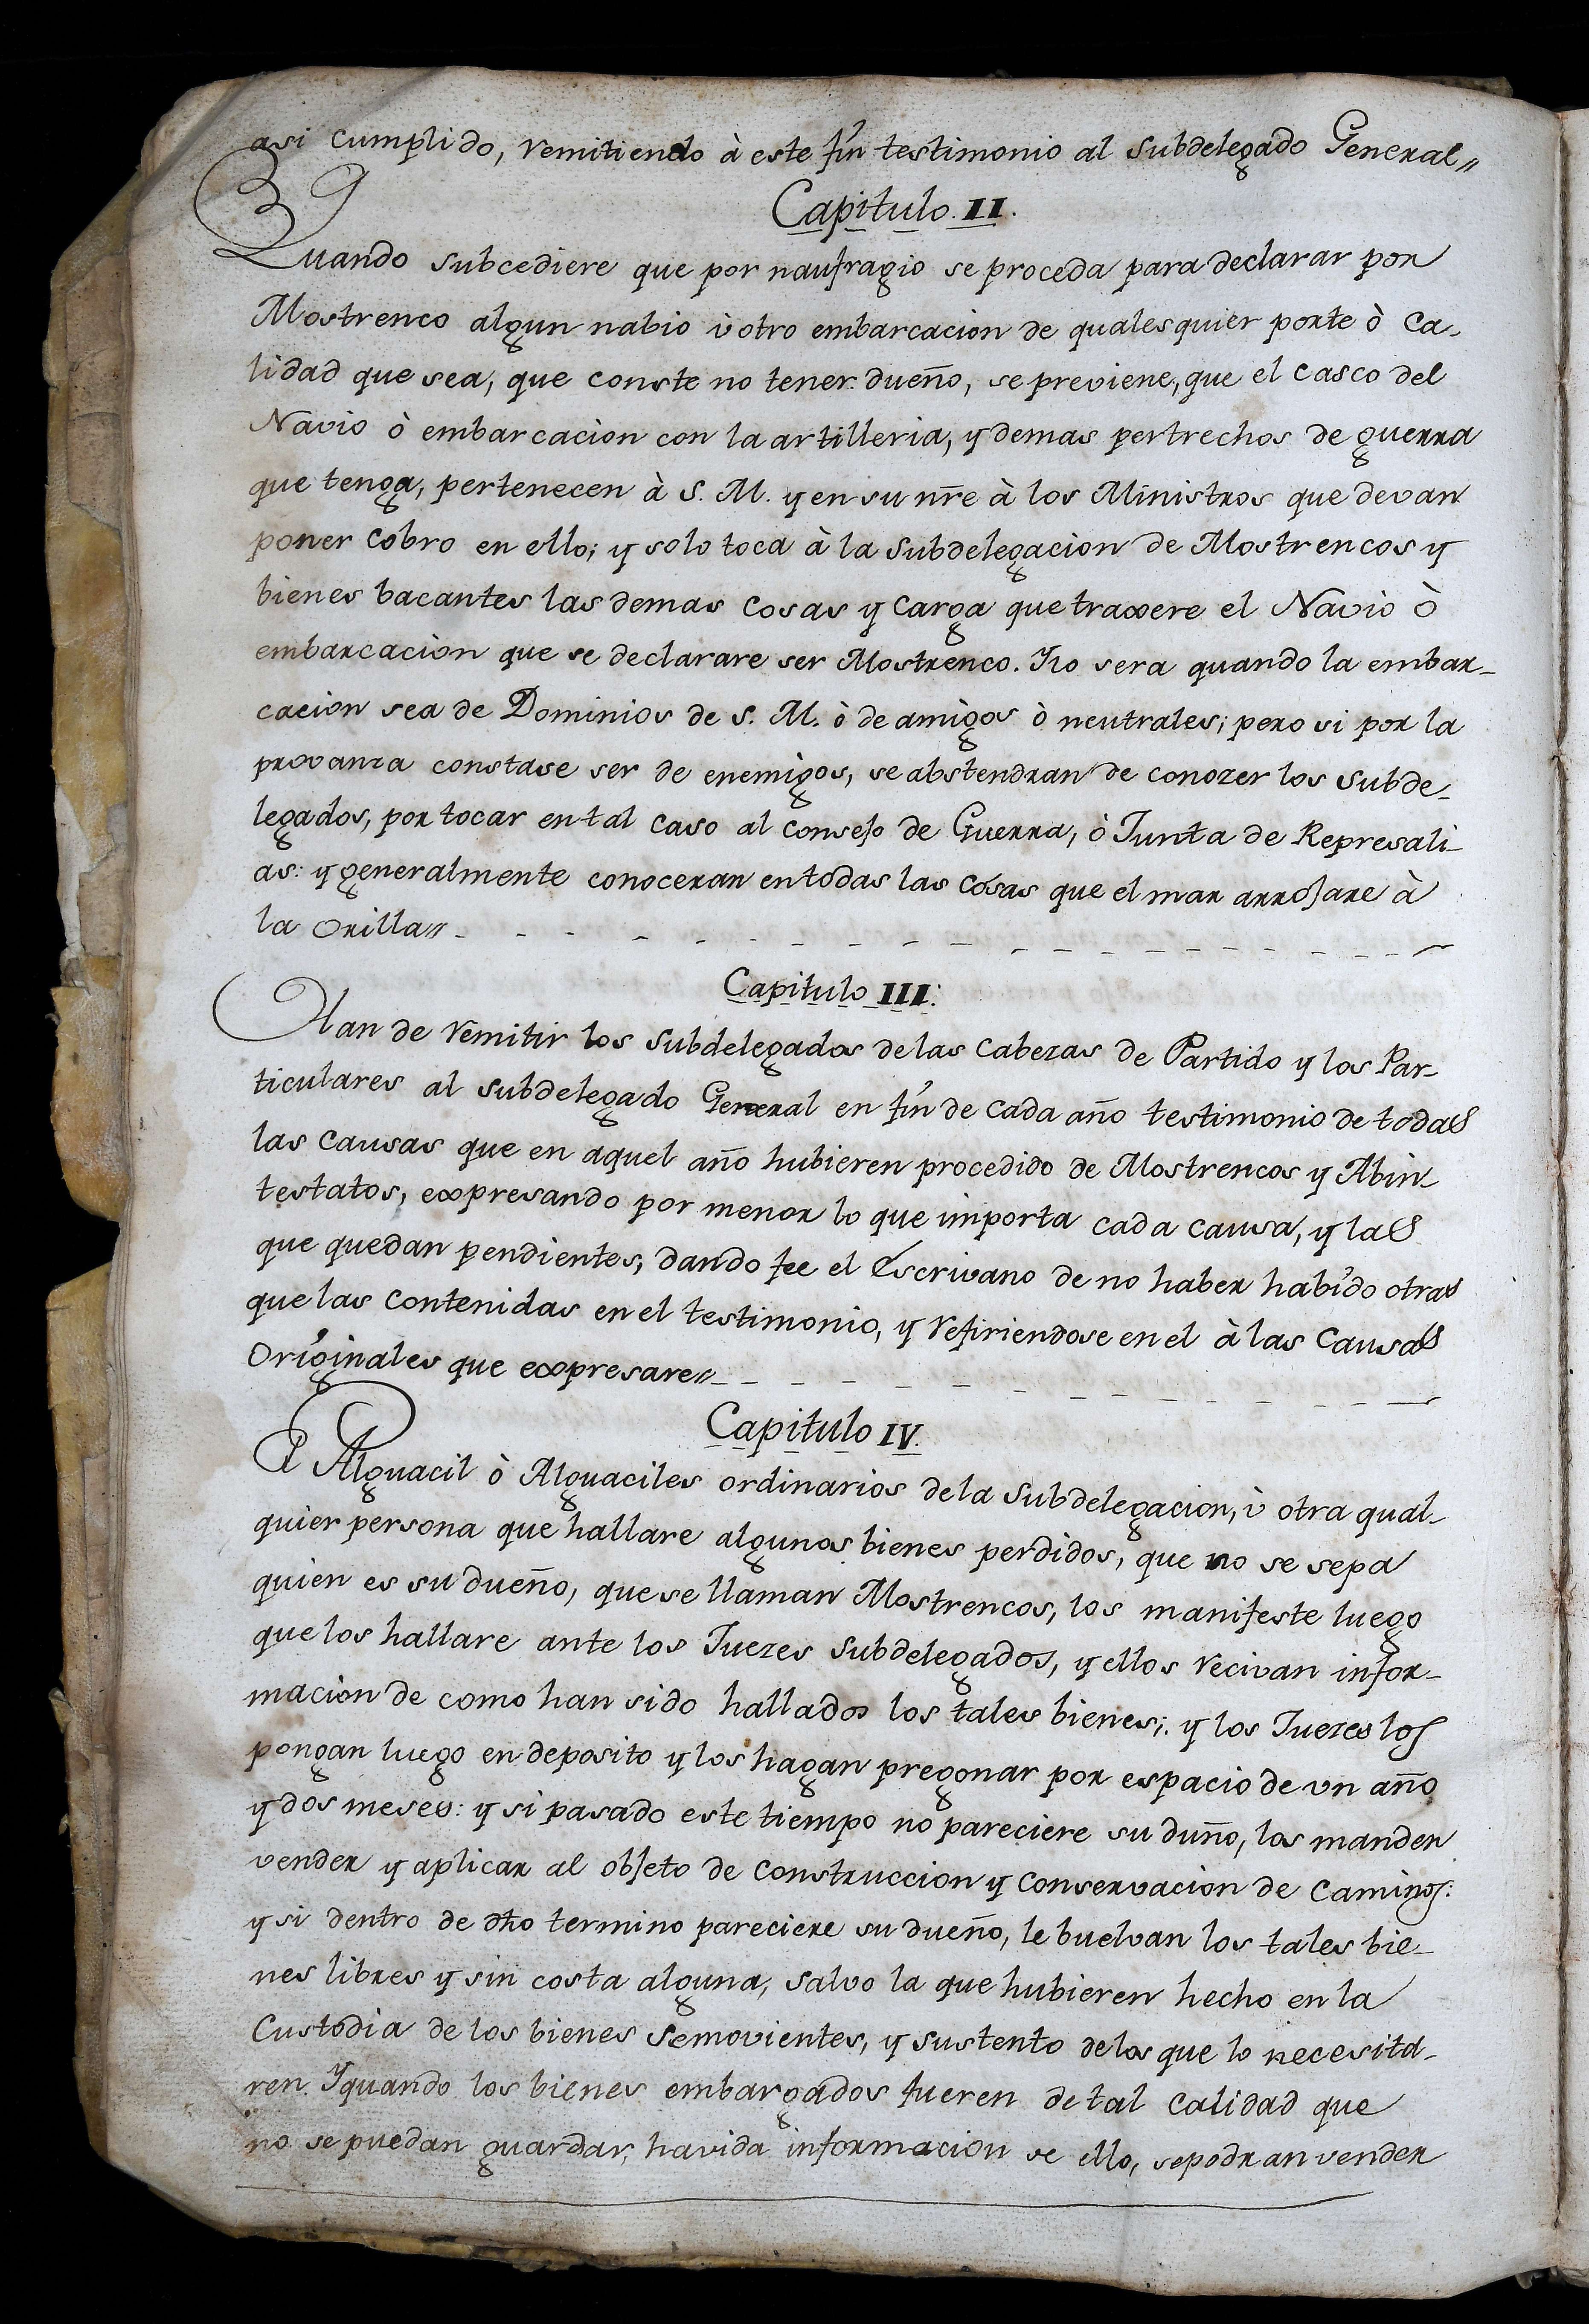 asi cumplido, remitiendo à este fin testimonio al subdelegado General//
Capitulo. II.
Quando subcediere que por naufragio se proceda para declarar por
Mostrenco algun nabio ù otro embarcacion de qualesquier porte ò ca-
lidad que sea, que conste no tener dueño, se previene, que el casco del
Navio ò embarcacion con la artilleria, y demas pertrechos de guerra
que tenga, pertenecen à S. M. y en su nr̃e à los Ministros que devan
poner cobro en ello; y solo toca à la subdelegacion de Mostrencos y
bienes bacantes las demas cosas y carga que traxere el Navio ò
embarcacion que se declarare ser Mostrenco. Yto sera quando la embar-
cacion sea de Dominios de S. M. ò de amigos ò neutrales; pero si por la
provanza constase ser de enemigos, se abstendran de conozer los subde-
legados, por tocar en tal caso al consejo de Guerra, ò Junta de Represali-
as: y generalmente conoceran en todas las cosas que el mar arrojare à
la orilla//
Capitulo III:
Han de remitir los subdelegados de las cabezas de Partido y los Par-
ticulares al subdelegado General en fin de cada año testimonio de todas
las causas que en aquel año hubieren procedido de Mostrencos y Abin-
testatos, expresando por menor lo que importa cada causa, y las
que quedan pendientes, dando fee el Escrivano de no haber habido otras
que las contenidas en el testimonio, y refiriendose en el à las causas
Originales que expresare//
Capitulo IV.
El Alguacil ò Alguaciles ordinarios de la subdelegacion, ù otra qual-
quier persona que hallare algunos bienes perdidos, que no se sepa
quien es su dueño, que se llaman Mostrencos, los manifeste luego
que los hallare ante los Juezes subdelegados, y ellos recivan infor-
macion de como han sido hallados los tales bienes; y los Juezes los
pongan luego en deposito y los hagan pregonar por espacio de un año
y dos meses: y si pasado este tiempo no pareciere su duño, los manden
vender y aplicar al objeto de construccion y conservacion de caminos:
y si dentro de dho termino pareciere su dueño, le buelvan los tales bie-
nes libres y sin costa alguna, salvo la que hubieren hecho en la
Custodia de los bienes semovientes, y sustento de los que lo necesita-
ren. Y quando los bienes embargados fueren de tal calidad que
no se puedan guardar, havida informacion se ello, se podran vender